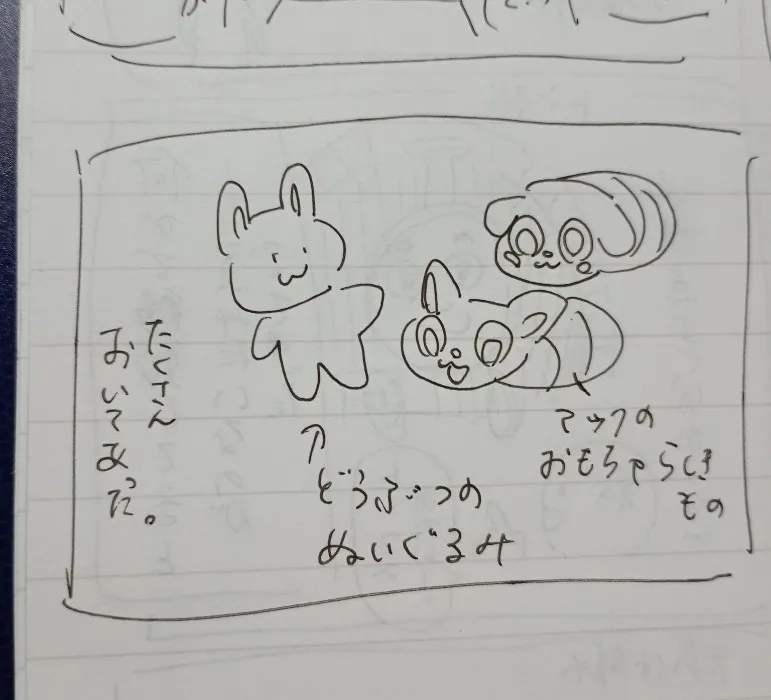 マックの
おもちゃらしき
もの
どうぶつの
ぬいぐるみ
たくさん
おいてあった。